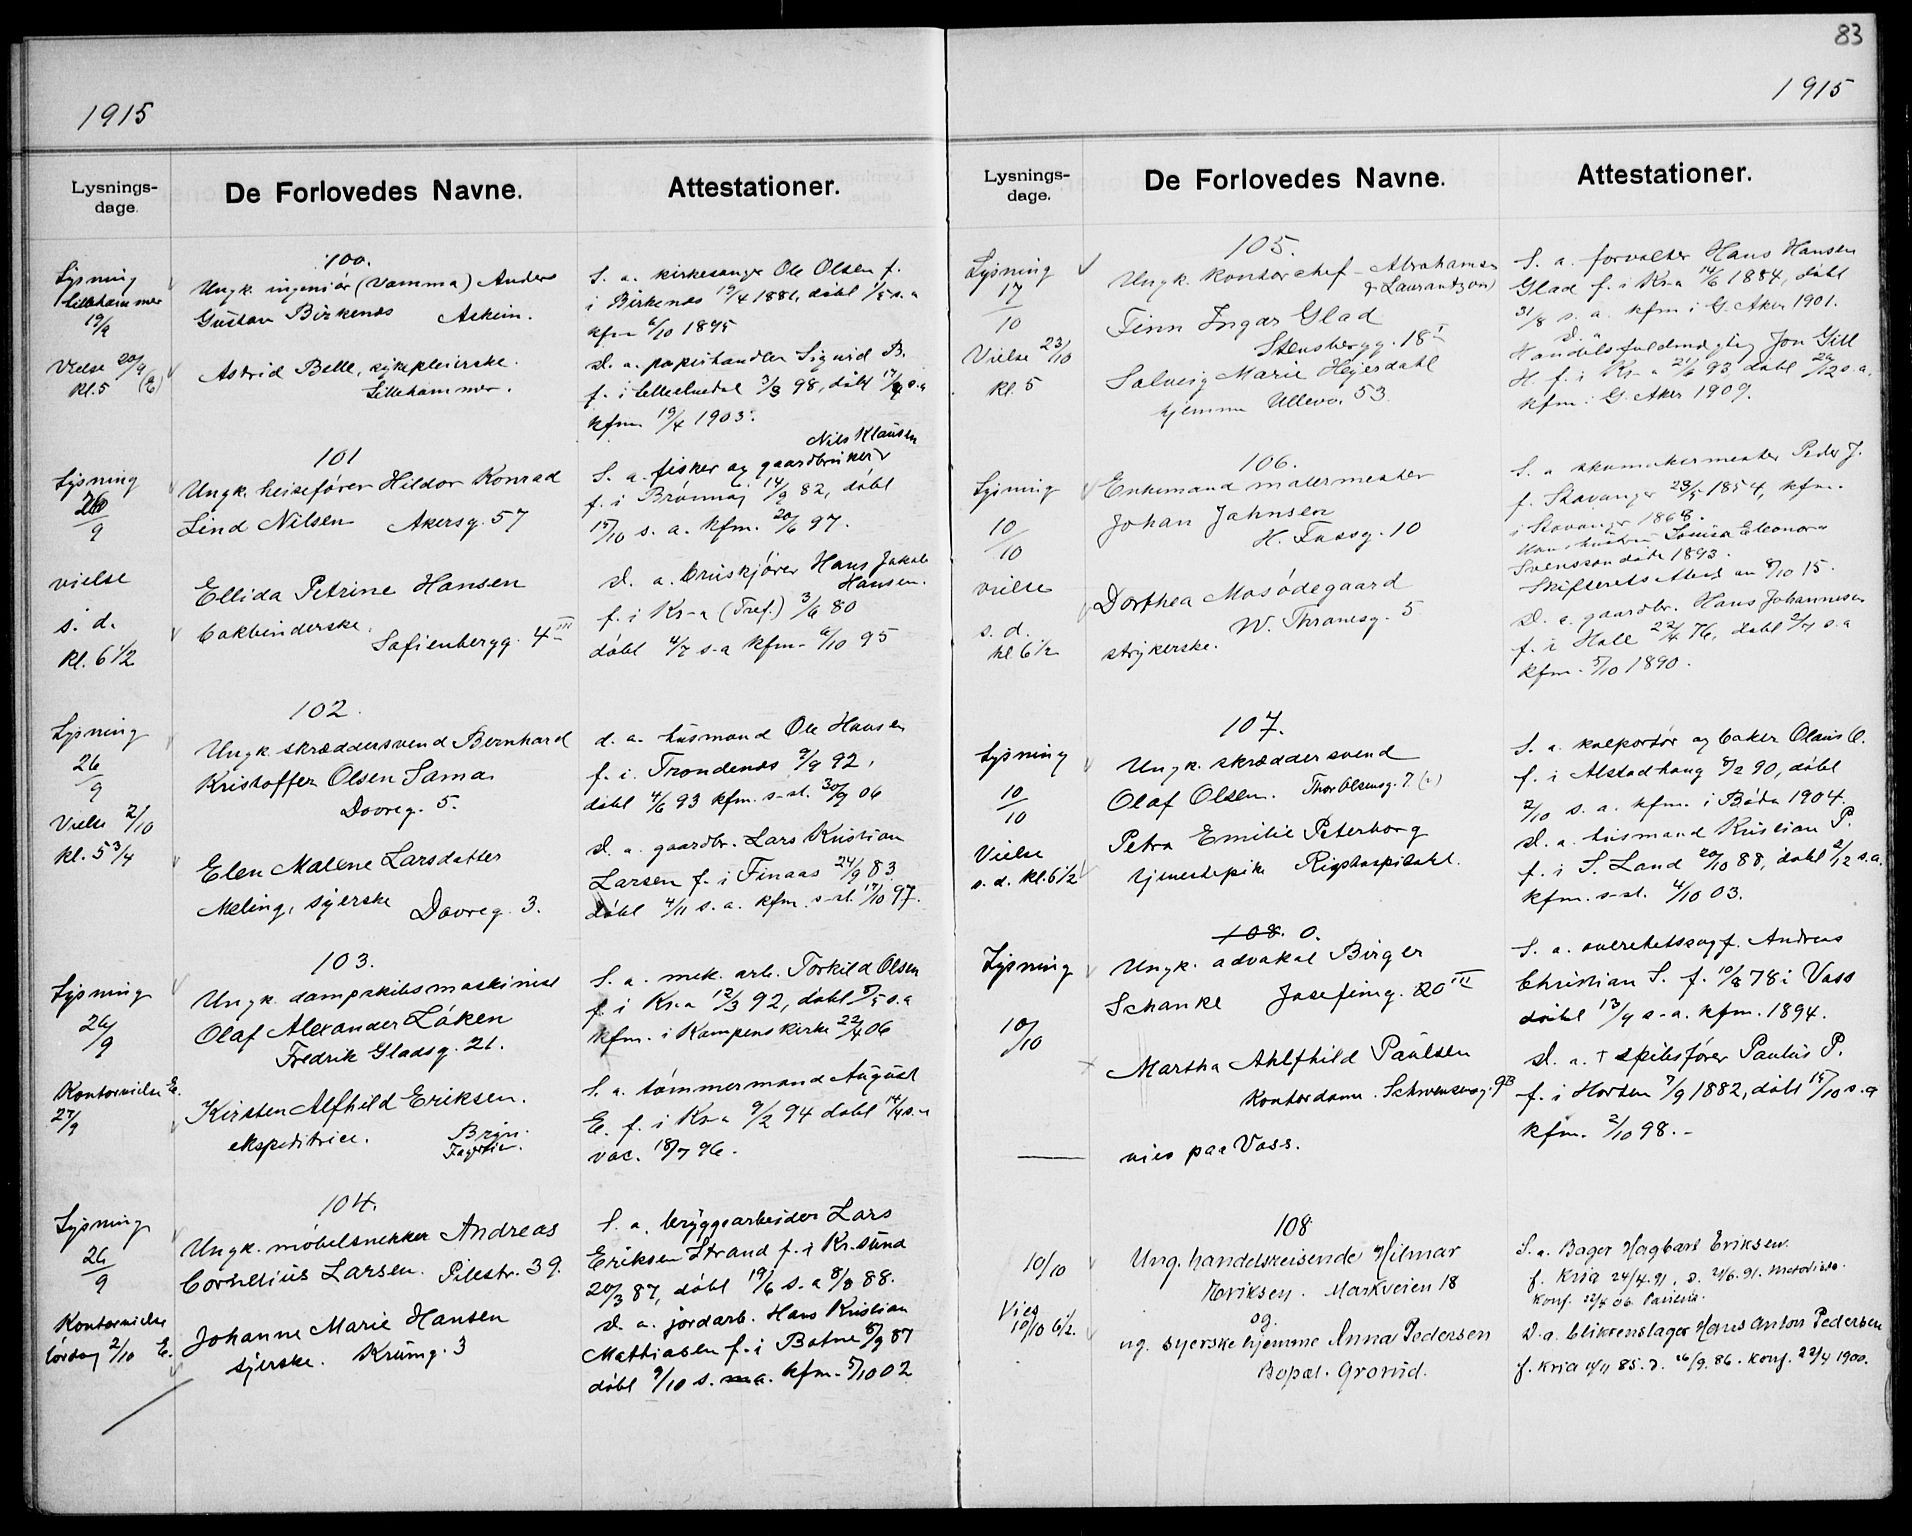 83
1915
Lysnings-
dage.
De Forlovedes Navne.
Attestationer.
100.
Lysning
Lillehammer
19/9
Vielse 20/9
kl. 5
Ungk. ingeniör (Vamma) Anders
Gustav Birkenes Askim.
Astrid Belle, sykepleierske.
Lillehammer.
S. a. kirkesanger Ole Olsen f.
i Birkenes 19/4 1881, döbt 1/5 s. a
kfm 6/10 1895
D. a. papirhandler Sigurd B.
f. i Lilleelvedal 3/3 98, döbt 17/4 s. a
kfm 19/4 1903.
101
Lysning
26
9
vielse
s. d.
kl. 6 1/2
Ungk. heisefører Hildor Konrad
Lind Nilsen Akersg. 57
Ellida Petrine Hansen
bokbinderske.
Sofienbergg. 4 III
Nils Klausen
S. a. fisker og gaardbruker
f. i Brönnöy 14/9 82, döbt
15/10 s. a. kfm. 20/6 97.
D. a. bruskjører Hans Jakob
Hansen.
f. i Kr-a (Tref.) 3/6 80
döbt 4/7 s-a kfm. 6/10 95
102.
Lysning
26
9
Vielse 2/10
kl. 5 3/4
Ungk. skræddersvend Bernhard
Kristoffer Olsen Sama
Dovreg. 5.
Elen Malene Larsdatter
Meling, syerske Dovreg. 3.
d. a. husmand Ole Hansen
f. i. Trondenes 9/9 92,
döbt 4/6 93 kfm. s-st. 30/9 06
D. a. gaardbr. Lars Kristian
Larsen f. i Finaas 24/9 83
döbt 4/11 s. a. kfm. s-st. 17/10 97.
103.
Lysning
26/9
Kontorvielse E.
27/9
Ungk. dampskibsmaskinist
Olaf Alexander Löken
Fredrik Gladsg. 21.
Kirsten Alfhild Eriksen.
ekspeditrice. Bryn.
S. a. mek. arb. Torkild Olsen
f. i Kr.a 12/3 92, döbt 8/5 s. a
kfm. i Kampens kirke 22/4 06
S. a. tömmermand August
E. f. i Kr-a 9/2 94 döbt 14/4 s. a
vac. 18/7 96.
104.
Lysning
26
9
Kontorvielse
lördag 2/10 E.
Ungk. möbelsnekker Andreas
Cornelius Larsen. Pilestr. 39.
Johanne Marie Hansen
syerske. Krumg. 3
S. a. bryggearbeider Lars
Eriksen Strand f. i Kr.sund
20/3 87, döbt 19/6 s. a 8/8 88.
D. a. jordarb. Hans Kristian
Mathiasen f. i Botne 8/9 87
döbt 9/10 s. a. kfm. 5/10 02
1915
Lysnings-
dage.
De Forlovedes Navne.
Attestationer.
105.
Lysning
17
10
Vielse 23/10
kl. 5
Ungk. kontorchef - Abrahamsen
& Laurantzon)
Finn Ingar Glad
Stensbergg. 18 I
Solveig Marie Hejesdahl
hjemme Ullevv. 53.
S. a. forvalter Hans Hansen
Glad f. i Kr-a 14/6 1884, döbt
31/8 s. a. kfm i G. Aker 1901.
D. a.
Handelsfuldmægtig Jon Gill
H. f. i Kr-a 21/6 93 döbt 29/12 s. a.
kfm. i G. Aker 1909.
106.
Lysning
10
10
vielse
s. d.
kl. 6 1/2
Enkemand malermester
Johan Jahnsen
H. Fossg. 10
Dorthea Mosödegaard
W. Thranesg. 5
strykerske.
S. a skomakermester Peder J.
f. Stavanger 23/5 1854, kfm.
i Stavanger 1868.
Hans hustru Louise Eleonora
Svensson döde 1893.
Skifterets Attest av 8/10 15.
D. a. gaardbr. Hans Johannesen
f. i Hole 22/4 76, döbt 9/7 s. a
kfm. 5/10 1890.
107.
Lysning
10
10
Vielse
s. d. kl. 6 1/2
Ungk. skræddersvend
Olaf Olsen. Thor Olsensg. 7
Petra Emilie Peterborg
tjenestepike Rigshospitalet.
S. a. kolportör og baker Olaus O.
f. i Alstadhaug 8/2 90, döbt
2/10 s. a. kfm. i Bodø 1904.
D. a. husmand Kristian P.
f. i S. Land 20/10 88, döbt 2/12 s. a.
kfm. s-st. 4/10 03.
108. O.
Lysning
10/10
Ungk. advokat Birger
Schanke Josefineg. 20 III
Martha Ahlfhild Paulsen
Kontordame. Schwensensg. 9B
viet paa Voss.
S. a. overretssagf. Andreas
Christian S. f. 10/8 78 i Voss
döbt 13/9 s-a. kfm. 1894.
D. a. + skibsfører Paulus P.
f. i Horten 7/9 1882, döbt 15/10 s. a
kfm. 2/10 98.-
108
10/10
Vies
10/10 6 1/2.
Ung. handelsreisende Hilmar
Eriksen. Markveien 18
og
ug. syerske hjemme Anna Pedersen
Bopæl. Grorud.
S. a. Bager Hagbart Eriksen.
f. Kria 24/4. 91, d. 21/6. 91. Metodist.
Konf. 22/4 06.
D. a. blikkenslager Hans Anton Pedersen
f. Kria 11/11 85. d. 26/9. 86. Konf. 22/4 1900.